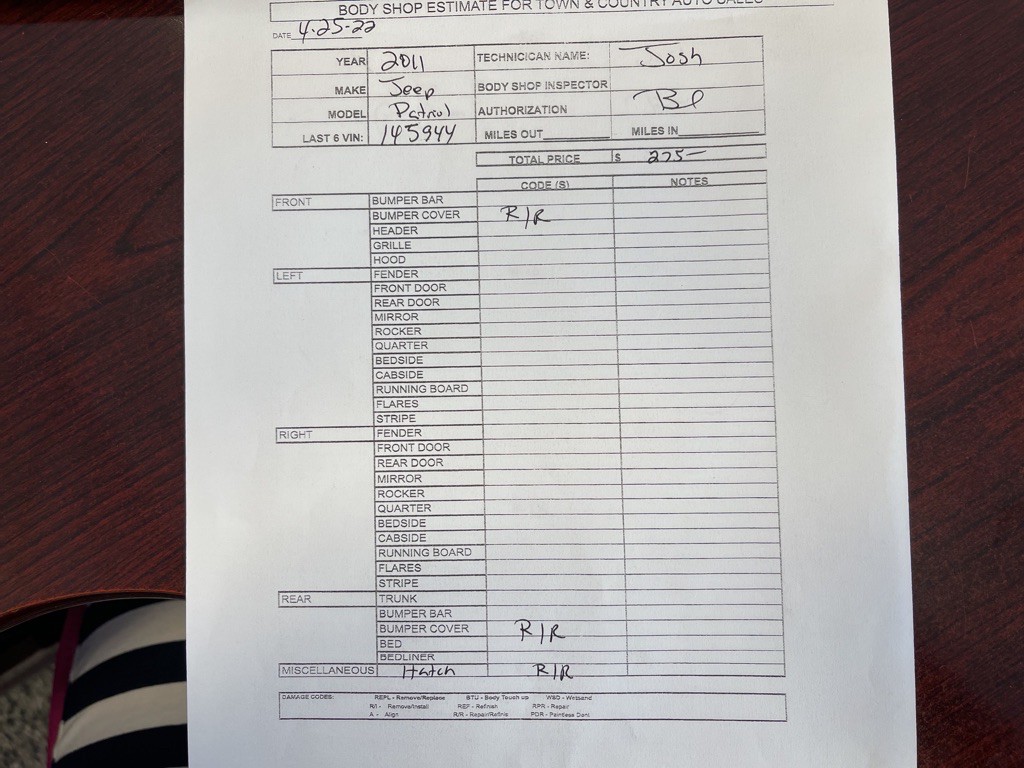 BODY SHOP ESTIMATE FOR TOWN & COUNTRY AUTO SALES
DATE 4-25-22
YEAR 2011 TECHNICICAN NAME: Josh
MAKE Jeep BODY SHOP INSPECTOR
MODEL Patriot AUTHORIZATION
LAST 6 VIN: 145944 MILES OUT MILES IN
TOTAL PRICE $ 275-
CODE (S) NOTES
FRONT BUMPER BAR
BUMPER COVER R/R
HEADER
GRILLE
HOOD
LEFT FENDER
FRONT DOOR
REAR DOOR
MIRROR
ROCKER
QUARTER
BEDSIDE
CABSIDE
RUNNING BOARD
FLARES
STRIPE
RIGHT FENDER
FRONT DOOR
REAR DOOR
MIRROR
ROCKER
QUARTER
BEDSIDE
CABSIDE
RUNNING BOARD
FLARES
STRIPE
REAR TRUNK
BUMPER BAR
BUMPER COVER R/R
BED
BEDLINER
MISCELLANEOUS Hatch R/R
DAMAGE CODES: REPL - Remove/Replace BTU - Body Touch up W&D - Wetsand
R/I - Remove/Install REF - Refinish RPR - Repair
A - Align R/R - Repair/Refinis PDR - Paintless Dent